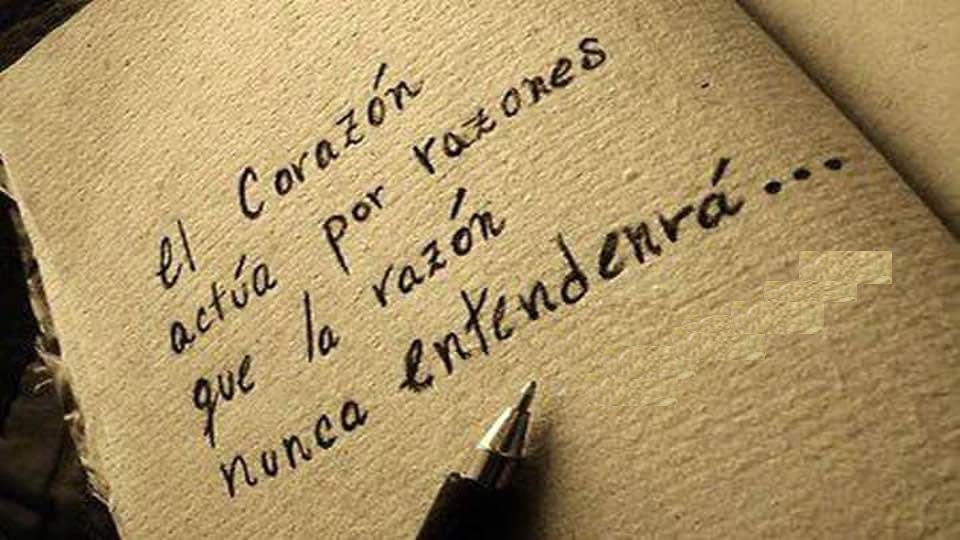 el Corazón
actúa por razones
que la razón
nunca entendenrá...